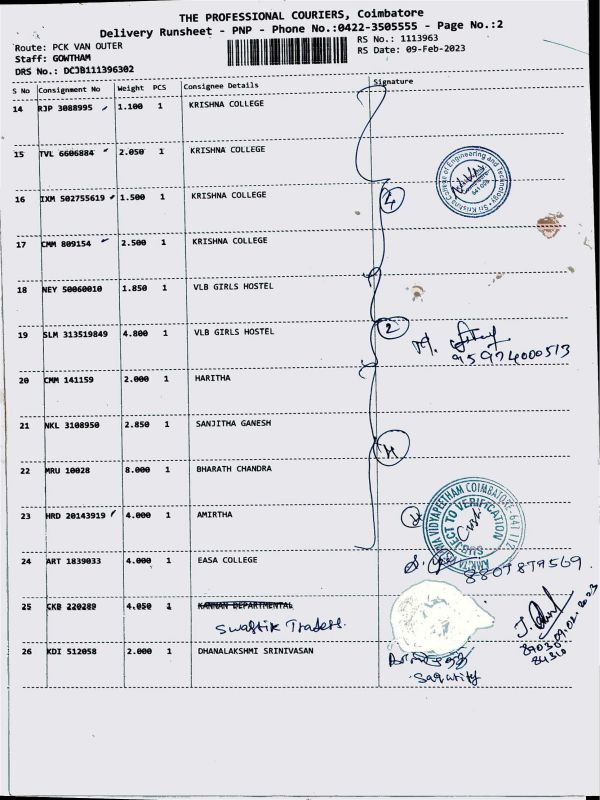 THE PROFESSIONAL COURIERS, Coimbatore
Delivery Runsheet - PNP - Phone No.:0422-3505555 - Page No.:2
Route: PCK VAN OUTER
RS No.: 1113963
Staff: GOWTHAM
RS Date: 09-Feb-2023
DRS No.: DCJB111396302
S No Consignment No Weight PCS Consignee Details Signature
14 RJP 3088995 1.100 1 KRISHNA COLLEGE
15 TVL 6606884 2.050 1 KRISHNA COLLEGE
Sri Krishna College of Engineering and Technology
16 IXM 502755619 1.500 1 KRISHNA COLLEGE
4
17 CMM 809154 2.500 1 KRISHNA COLLEGE
18 NEY 50060010 1.850 1 VLB GIRLS HOSTEL
19 SLM 313519849 4.800 1 VLB GIRLS HOSTEL
2
20 CMM 141159 2.000 1 HARITHA
21 NKL 3108950 2.850 1 SANJITHA GANESH
22 MRU 10028 8.000 1 BHARATH CHANDRA
23 HRD 20143919 4.000 1 AMIRTHA
VIDYAPEETHAM COIMBATORE - 641 112
SUBJECT TO VERIFICATION
24 ART 1839033 4.000 1 EASA COLLEGE
25 CKB 220289 4.050 1 KANNAN DEPARTMENTAL
Swastik Traders.
26 KDI 512058 2.000 1 DHANALAKSHMI SRINIVASAN